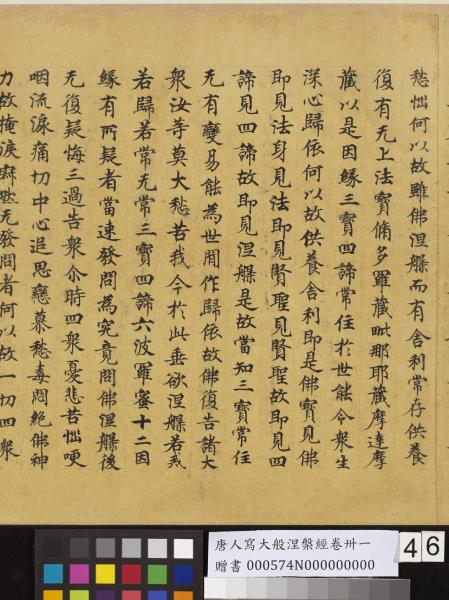 愁惱何以故雖佛涅槃而有舍利常存供養
復有无上法寶脩多羅藏毗那耶藏摩達摩
藏以是因緣三寶四諦常住於世能令衆生
深心歸依何以故供養舍利即是佛寶見佛
即見法身見法即見賢聖見賢聖故即見四
諦見四諦故即見涅槃是故當知三寶常住
无有變易能為世間作歸依故佛復告諸大
衆汝等莫大愁苦我今於此垂欲涅槃若戒
若歸若常无常三寶四諦六波羅蜜十二因
緣有所疑者當速發問為究竟問佛涅槃後
无復疑悔三過告衆尒時四衆憂悲苦惱哽
咽流淚痛切中心追思戀慕愁毒悶絕佛神
力故掩淚嘿然无發問者何以故一切四衆
唐人寫大般涅槃經卷卅一
贈書 000574N000000000
46